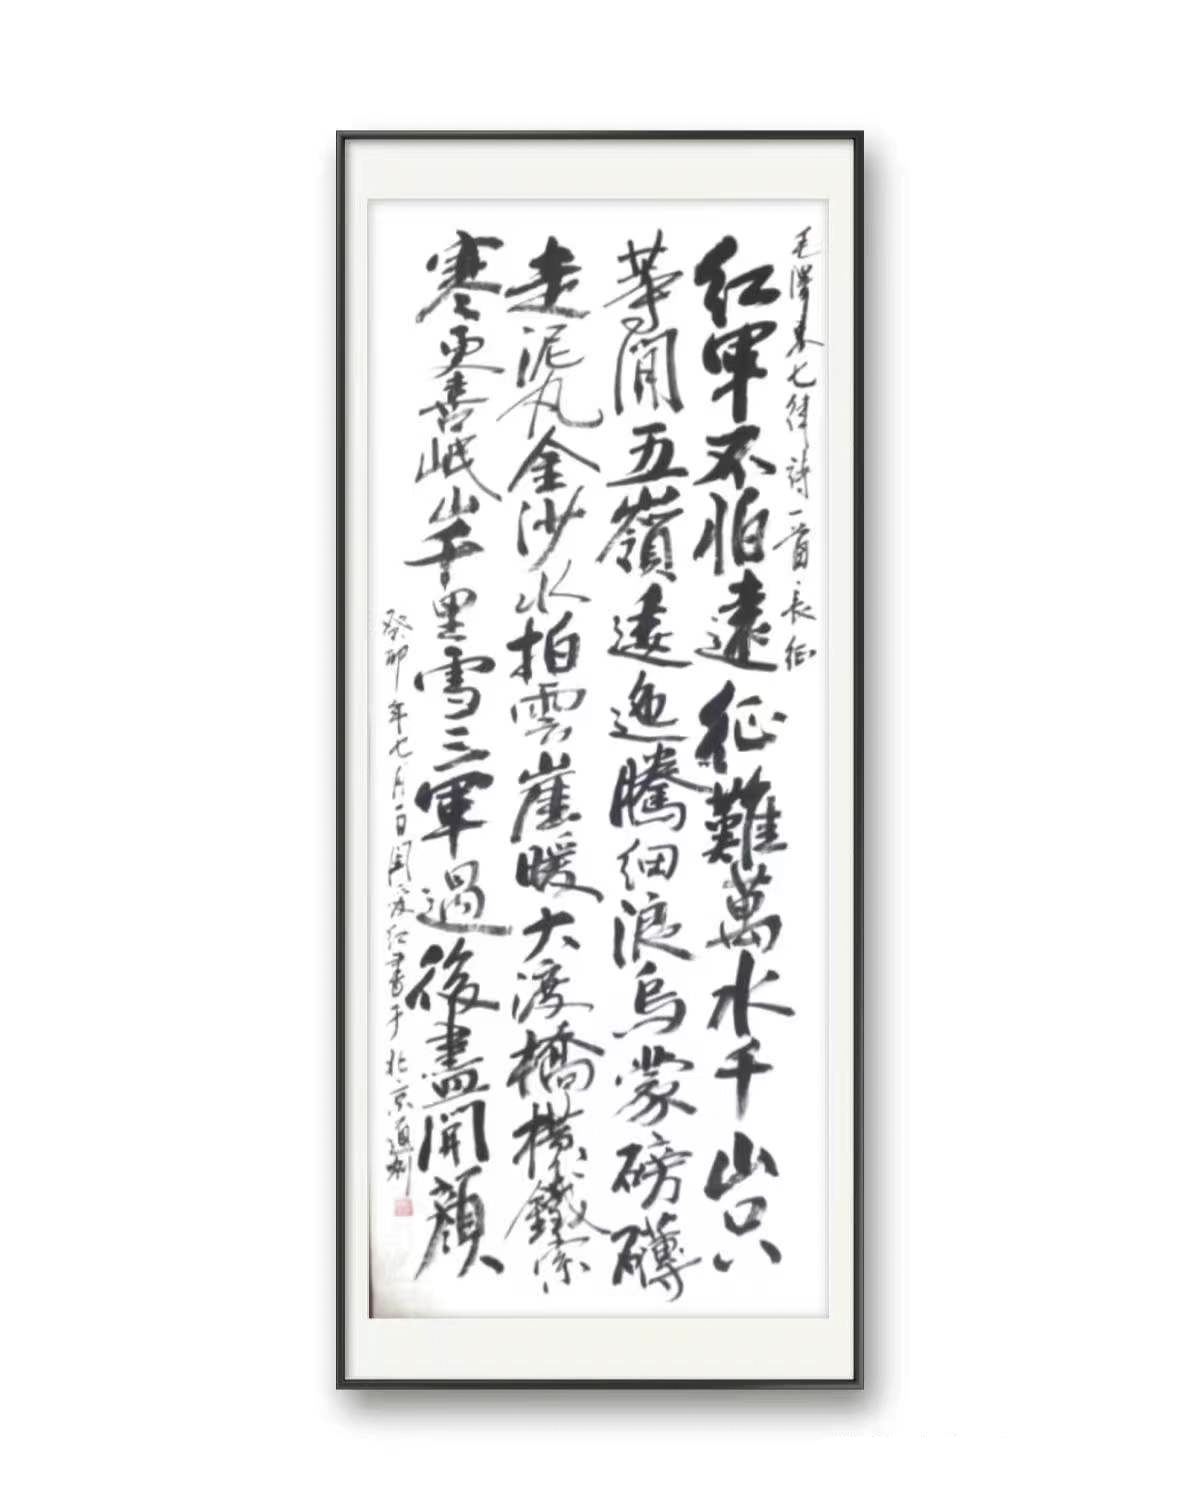 毛澤東七律詩一首長征
紅軍不怕遠征難萬水千山只
等閒五嶺逶迤騰細浪烏蒙磅礴
走泥丸金沙水拍雲崖暖大渡橋橫鐵索
寒更喜岷山千里雪三軍過後盡開顏
癸卯年七月一日红書于北京通州